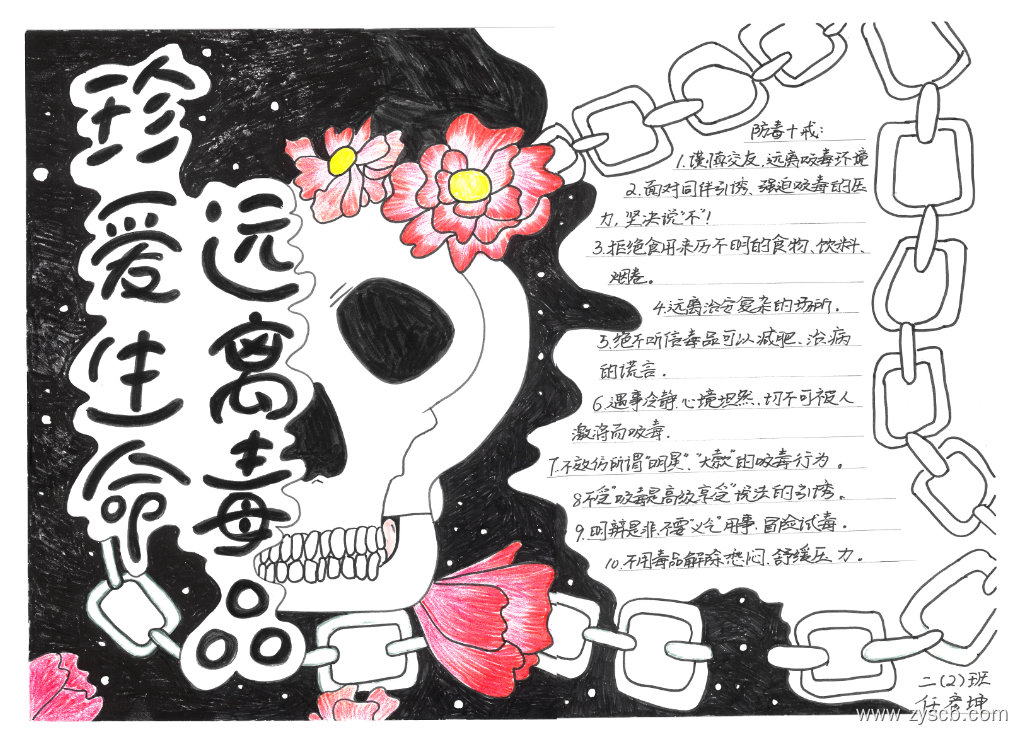 珍爱生命
远离毒品
防毒十戒:
1.谨慎交友、远离吸毒环境
2.面对同伴引诱、强迫吸毒的压
力,坚决说“不”!
3.拒绝食用来历不明的食物、饮料、
烟卷。
4.远离治安复杂的场所.
5.绝不听信毒品可以减肥、治病
的谎言.
6.遇事冷静.心境坦然、切不可被人
激将而吸毒.
7.不效仿所谓“明星”、“大款”的吸毒行为。
8不受“吸毒是高级享受”说法的引诱。
9.明辨是非、不要“义气”用事、冒险试毒.
10.不用毒品解除愁闷、舒缓压力.
二(2)班
任彦坤
www.zyscb.com